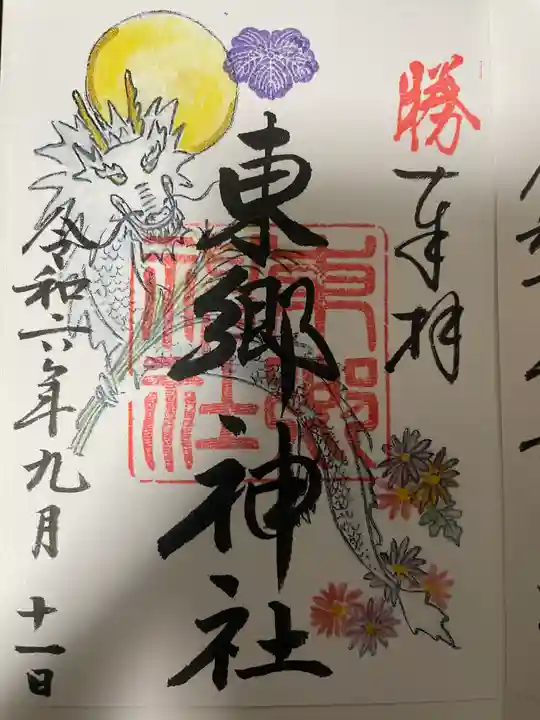 勝
奉拝
東郷神社
東郷神社
令和六年九月十一日